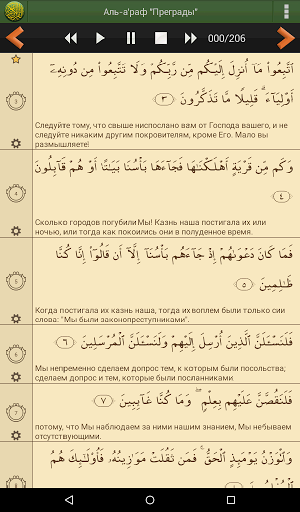 Аль-а'раф "Преграды"
000/206
ٱتَّبِعُوا۟ مَآ أُنزِلَ إِلَيْكُم مِّن رَّبِّكُمْ وَلَا تَتَّبِعُوا۟ مِن دُونِهِۦٓ
أَوْلِيَآءَ ۗ قَلِيلًا مَّا تَذَكَّرُونَ ٣
3
Следуйте тому, что свыше ниспослано вам от Господа вашего, и не
следуйте никаким другим покровителям, кроме Его. Мало вы
размышляете!
وَكَم مِّن قَرْيَةٍ أَهْلَكْنَٰهَا فَجَآءَهَا بَأْسُنَا بَيَٰتًا أَوْ هُمْ قَآئِلُونَ
٤
4
Сколько городов погубили Мы! Казнь наша постигала их или
ночью, или тогда как покоились они в полуденное время.
فَمَا كَانَ دَعْوَىٰهُمْ إِذْ جَآءَهُم بَأْسُنَآ إِلَّآ أَن قَالُوٓا۟ إِنَّا كُنَّا
ظَٰلِمِينَ ٥
5
Когда постигала их казнь наша, тогда их воплем были только сии
слова: "Мы были законопреступниками".
فَلَنَسْـَٔلَنَّ ٱلَّذِينَ أُرْسِلَ إِلَيْهِمْ وَلَنَسْـَٔلَنَّ ٱلْمُرْسَلِينَ ٦
6
Мы непременно сделаем допрос тем, к которым были посольства;
сделаем допрос и тем, которые были посланниками.
فَلَنَقُصَّنَّ عَلَيْهِم بِعِلْمٍ ۖ وَمَا كُنَّا غَآئِبِينَ ٧
7
потому, что Мы наблюдаем за ними нашим знанием, Мы небываем
отсутствующими.
وَٱلْوَزْنُ يَوْمَئِذٍ ٱلْحَقُّ ۚ فَمَن ثَقُلَتْ مَوَٰزِينُهُۥ فَأُو۟لَٰٓئِكَ هُمُ
8